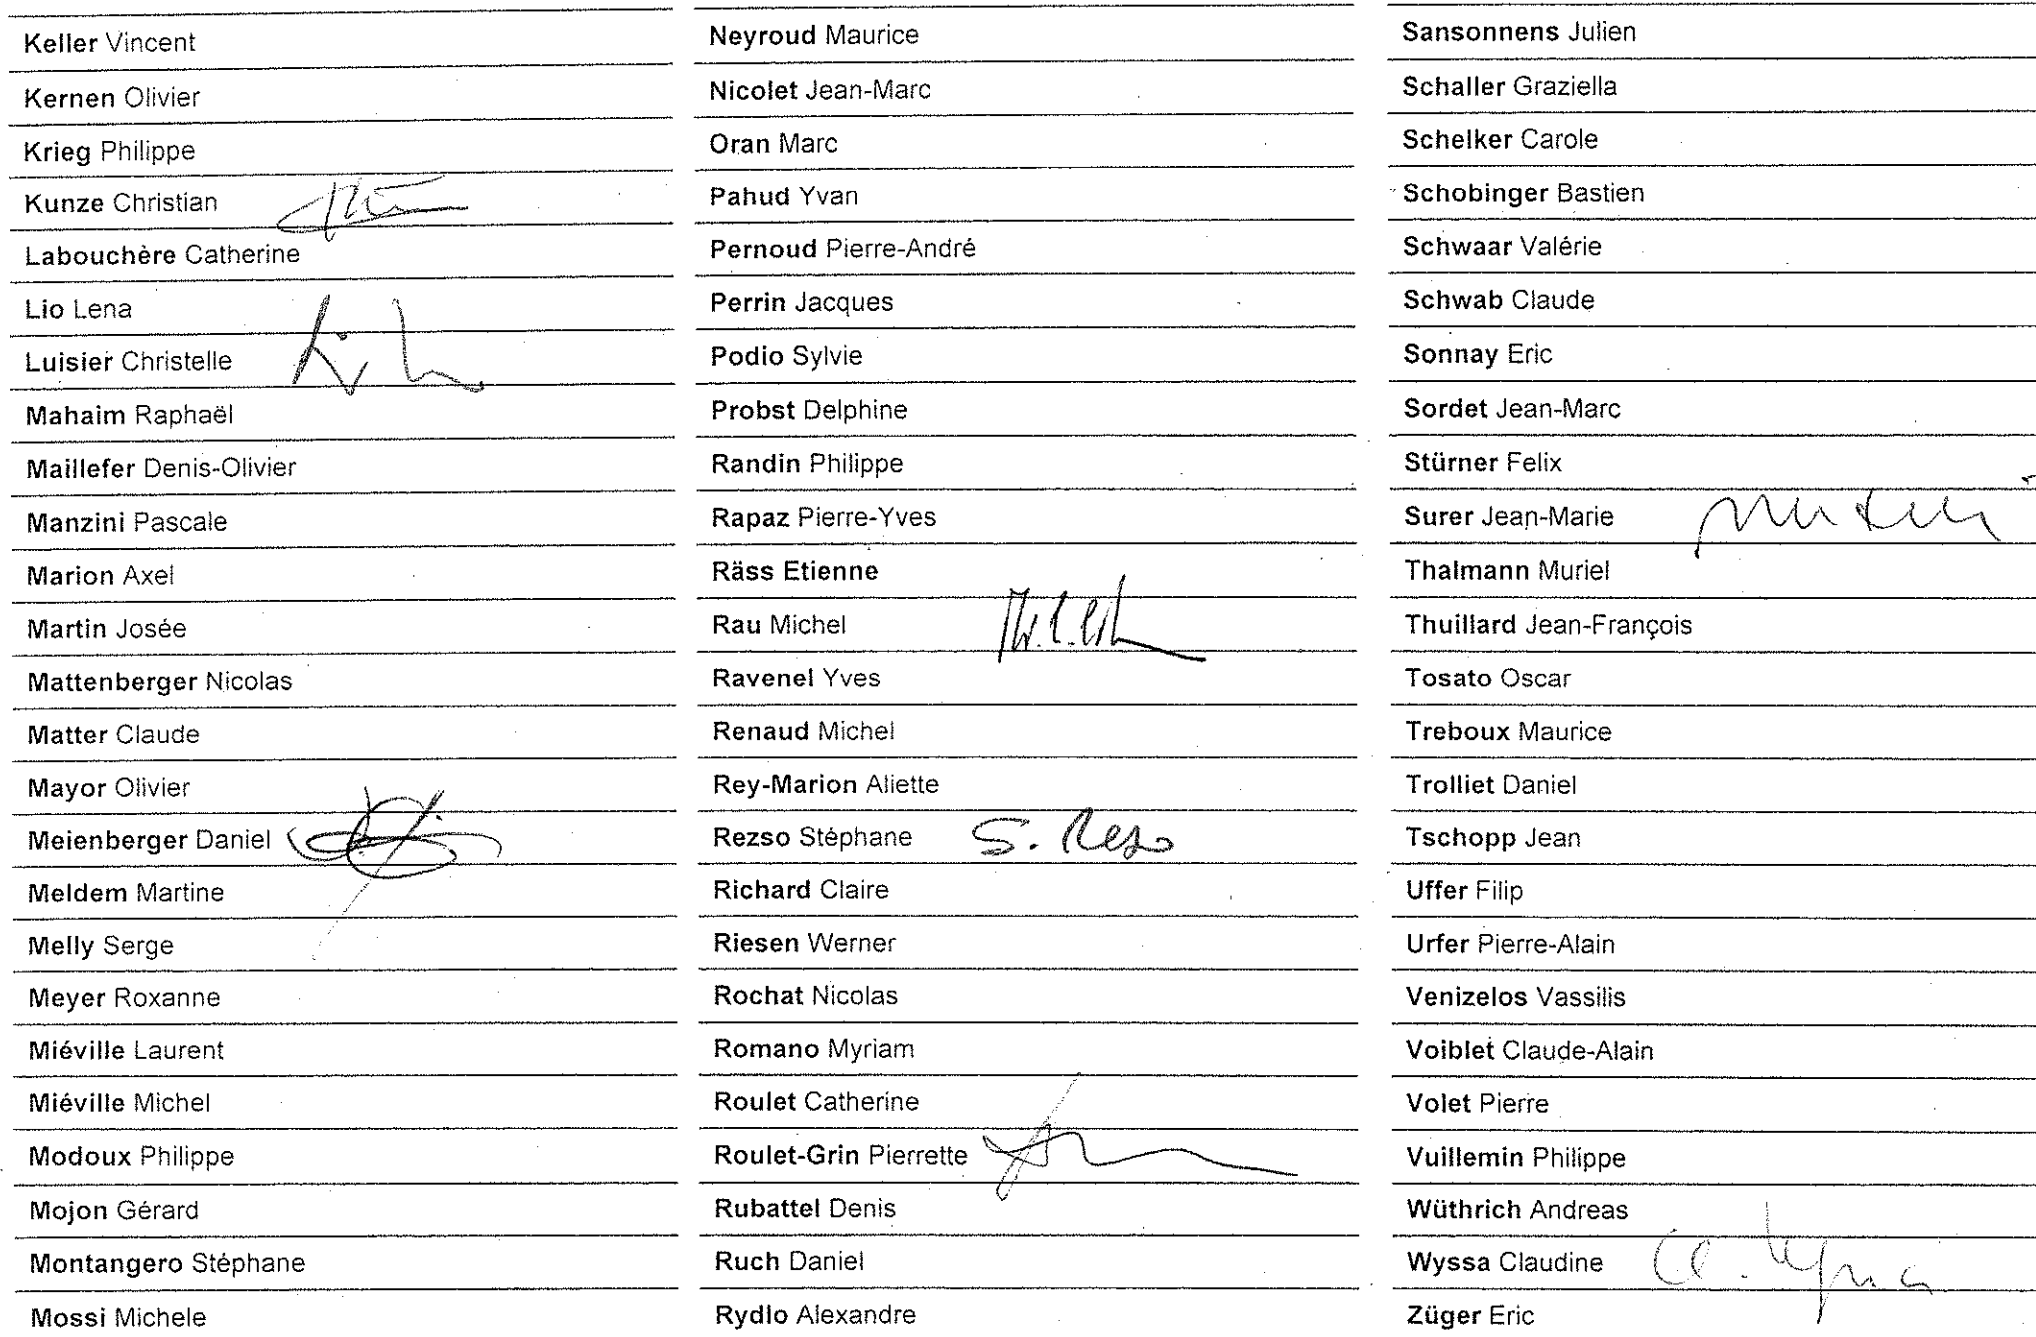 Keller Vincent
Kernen Olivier
Krieg Philippe
Kunze Christian
Labouchère Catherine
Lio Lena
Luisier Christelle
Mahaim Raphaël
Maillefer Denis-Olivier
Manzini Pascale
Marion Axel
Martin Josée
Mattenberger Nicolas
Matter Claude
Mayor Olivier
Meienberger Daniel
Meldem Martine
Melly Serge
Meyer Roxanne
Miéville Laurent
Miéville Michel
Modoux Philippe
Mojon Gérard
Montangero Stéphane
Mossi Michele
Neyroud Maurice
Nicolet Jean-Marc
Oran Marc
Pahud Yvan
Pernoud Pierre-André
Perrin Jacques
Podio Sylvie
Probst Delphine
Randin Philippe
Rapaz Pierre-Yves
Räss Etienne
Rau Michel
Ravenel Yves
Renaud Michel
Rey-Marion Aliette
Rezso Stéphane S. Rezso
Richard Claire
Riesen Werner
Rochat Nicolas
Romano Myriam
Roulet Catherine
Roulet-Grin Pierrette
Rubattel Denis
Ruch Daniel
Rydlo Alexandre
Sansonnens Julien
Schaller Graziella
Schelker Carole
Schobinger Bastien
Schwaar Valérie
Schwab Claude
Sonnay Eric
Sordet Jean-Marc
Stürner Felix
Surer Jean-Marie
Thalmann Muriel
Thuillard Jean-François
Tosato Oscar
Treboux Maurice
Trolliet Daniel
Tschopp Jean
Uffer Filip
Urfer Pierre-Alain
Venizelos Vassilis
Voiblet Claude-Alain
Volet Pierre
Vuillemin Philippe
Wüthrich Andreas
Wyssa Claudine
Züger Eric